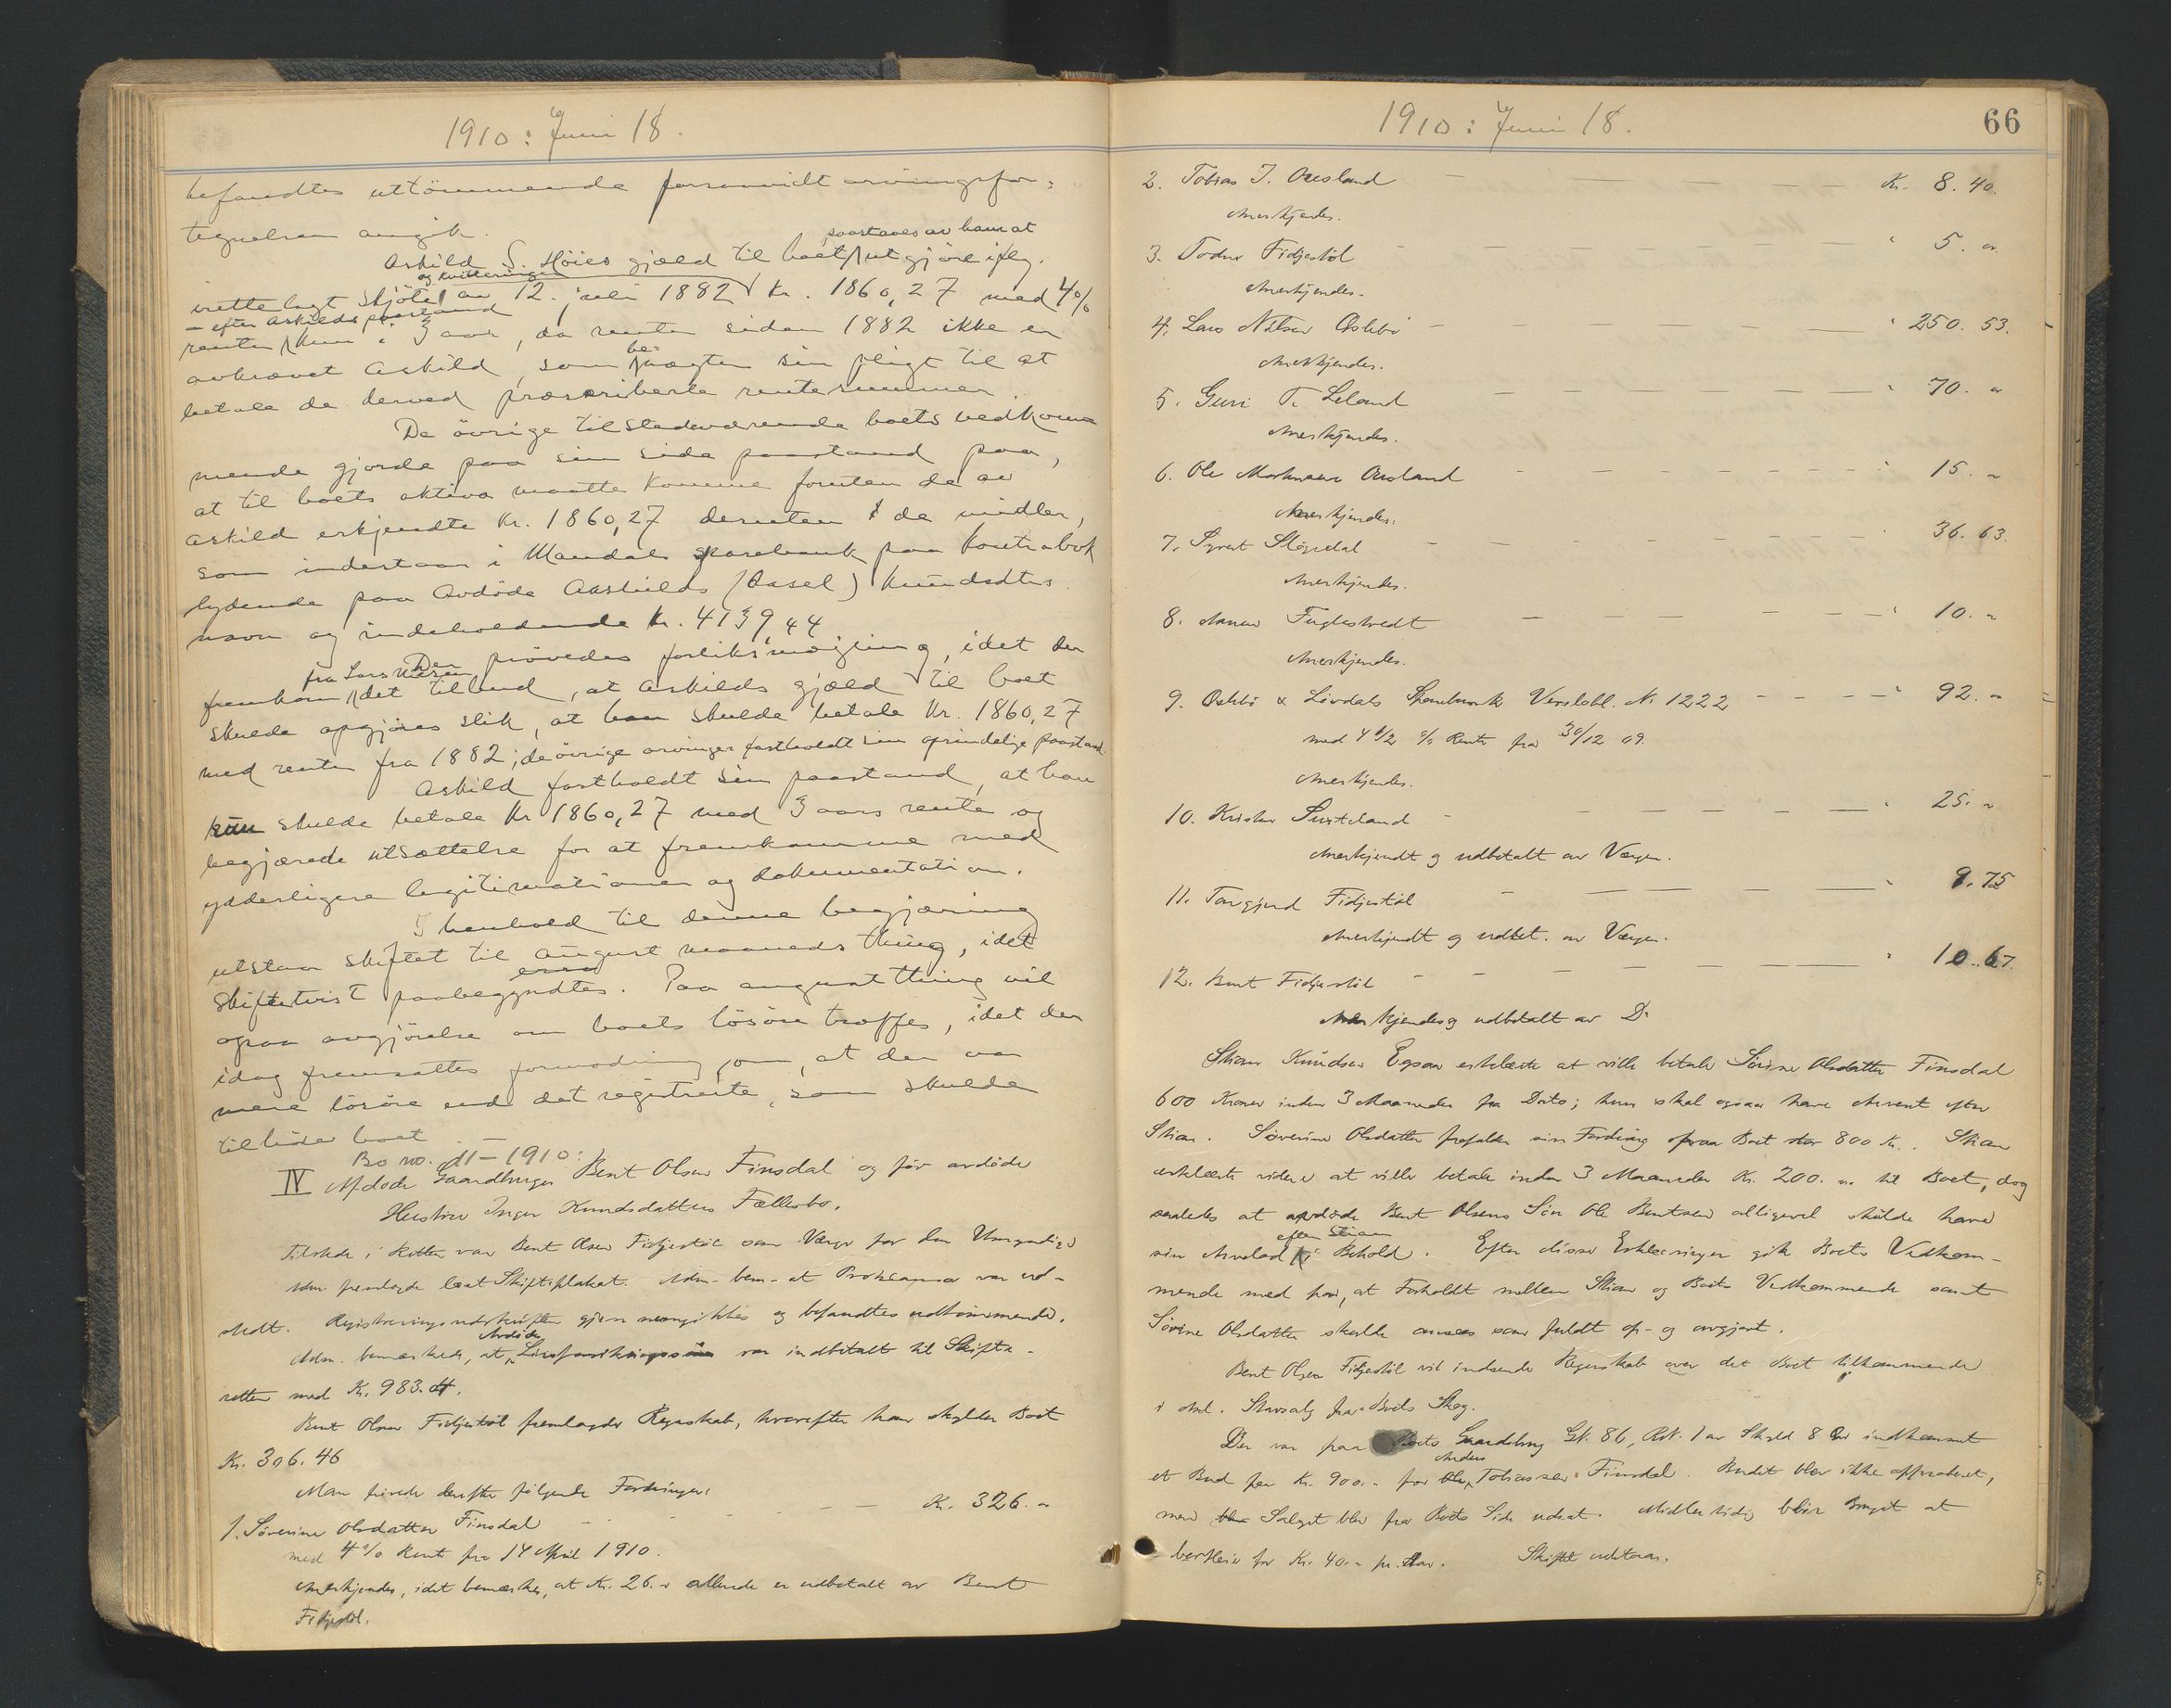 1910: Juni 18.
befandtes uttømmende forsaavidt arvingsfor-
tegnelsen angik.
paastaaes av ham at
Askild S. Høies gjæld til boet utgjøre ifølg.
og kvitteringen
irettelagt skjøte av 12. juli 1882 kr. 1860,27 med 4%
– efter Askilds paastand
renter kun i 3 aar, da renten siden 1882 ikke er
avkrævet Askild, som benægter sin pligt til at
betale de derved præskriberte rentesummer.
De øvrige tilstedeværende boets vedkom-
mende gjorde paa sin side paastand paa,
at til boets aktiva maatte komme foruten de av
Askild erkjendte kr. 1860,27 desuten de midler,
som indestaar i Mandals sparebank paa kontrabok
lydende paa avdøde Aashilds (Aasel) Knudsdtrs
navn og indeholdende kr. 4139,44
Der prøvedes forliksmægling, idet der
fra Lars Nilsen
fremkom det tilbud, at Askilds gjæld til boet
skulde opgjøres slik, at han skulde betale kr. 1860,27
med renter fra 1882; de øvrige arvinger fastholdt sin oprindelige paastand.
Askild fastholdt sin paastand, at han
kun skulde betale kr 1860,27 med 3 aars rente og
begjærede utsættelse for at fremkomme med
ydderligere legitimationer og dokumentation.
I henhold til denne begjæring
utstaar skiftet til august maaneds thing, idet
skiftetvist paabegyndtes. Paa augustthing vil
ogsaa avgjørelse om boets løsøre træffes, idet der
idag fremsattes formodning om, at der var
mere løsøre end det registrerte, som skulde
tilhøre boet. –
Bo no. 11 – 1910:
IV Afdøde Gaardbruger Bent Olsen Finsdal og før avdøde
Hustru Inger Knudsdatters Fællesbo.
Tilstede i Retten var Bent Olsen Fidjestøl som Værge for den Umyndige
Adm. fremlagde læst Skifteplakat. Adm. bem. at Proklama var ud-
stedt. Registreringsudskriften gjennemgikkes og befandtes udtømmende.
Avdøde
Adm. bemærkede, at Livsforsikringssum var indbetalt til Skifte-
retten med Kr. 983.
Bent Olsen Fidjestøl fremlagde Regnskab, hvorefter han skylder Boet
Kr. 306.46
Man prøvede derefter følgende Fordringer:
1. Søverine Olsdatter Finsdal – – Kr. 326. "
med 4% Rente fra 14 April 1910.
Anerkjendes, idet bemærkes, at Kr. 26. " allerede er udbetalt av Bent
Fidjestøl.
1910: Juni 18. 66
2. Tobias J. Ousland Kr. 8.40.
Anerkjendes.
3. Todne Fidjestøl " 5. "
Anerkjendes.
4. Lars Nilsen Øslebø " 250.53.
Anerkjendes.
5. Guri T. Leland " 70. "
Anerkjendes.
6. Ole Ousland " 15. "
Anerkjendes.
7. Syvert Støgedal 36.63.
Anerkjendes.
8. Fuglestvedt " 10. "
Anerkjendes.
9. Øslebø & Løvdals Sparebank Vexelobl. N. 1222 " 92. "
med 4 1/2 % Rente fra 30/12 09.
Anerkjendes.
10. " 25. "
Anerkjendt og udbetalt av Værgen.
11. Torgjerd Fidjestøl " 9.75
Anerkjendt og udbet. av Værgen.
12. Bent Fidjestøl " 10.67.
Anerkjendes og udbetalt av Do
Stian Knudsen Egsaa erklærte at ville betale Sørine Olsdatter Finsdal
600 Kroner inden 3 Maaneder fra Dato; hun skal ogsaa have efter
Stian. Søverine Olsdatter frafalder sin Fordring ogsaa Boet 800 Kr. Stian
erklærte videre at ville betale inden 3 Maaneder Kr. 200. " til Boet, dog
saaledes at avdøde Bent Olsens Søn Ole Bentsen alligevel skulde have
efter Stian
sin Arvelod i Behold. Efter disse Erklæringer gik Boets Vedkom-
mende med paa, at Forholdt mellem Stian og Boets Vedkommende samt
Sørine Olsdatter skulde ansees som fuldt op- og avgjort.
Bent Olsen Fidjestøl vil indsende Regnskab over det Boet tilkommende
i Skog.
Der var paa Boets Gaardsbrug Gr. 86, Brk. 1 av Skyld 8 Øre indkommet
Anders
et Bud paa Kr. 900. – fra Tobiassen Finsdal. Budet blev ikke approberet,
men Salget blev fra Boets Side udsat. Midlertidig blir Bruget at
bortleie for Kr. 40. " pr. Aar. Skiftet udstaar.